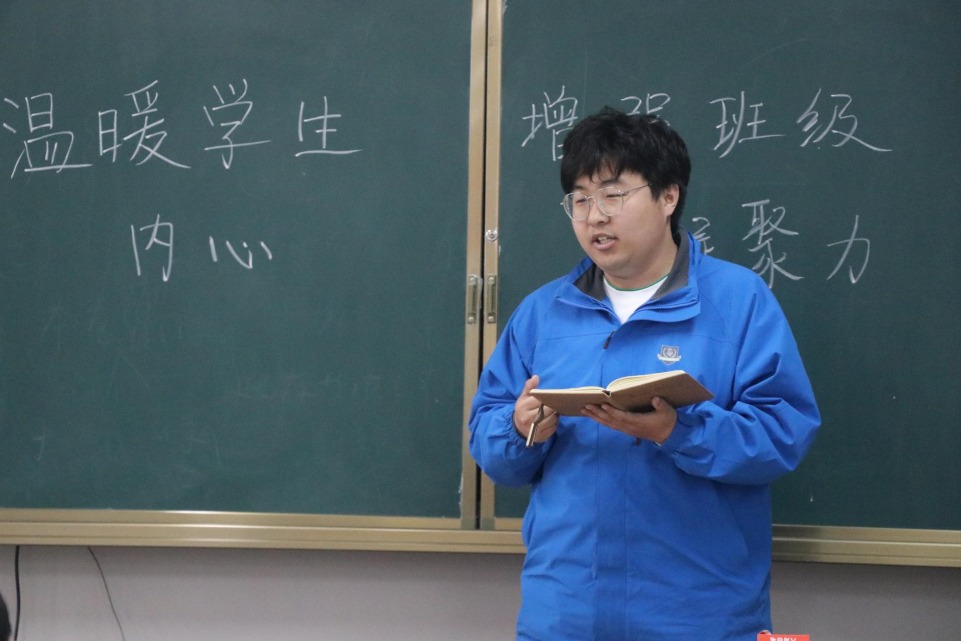 温暖学生
内心
增强班级
聚力